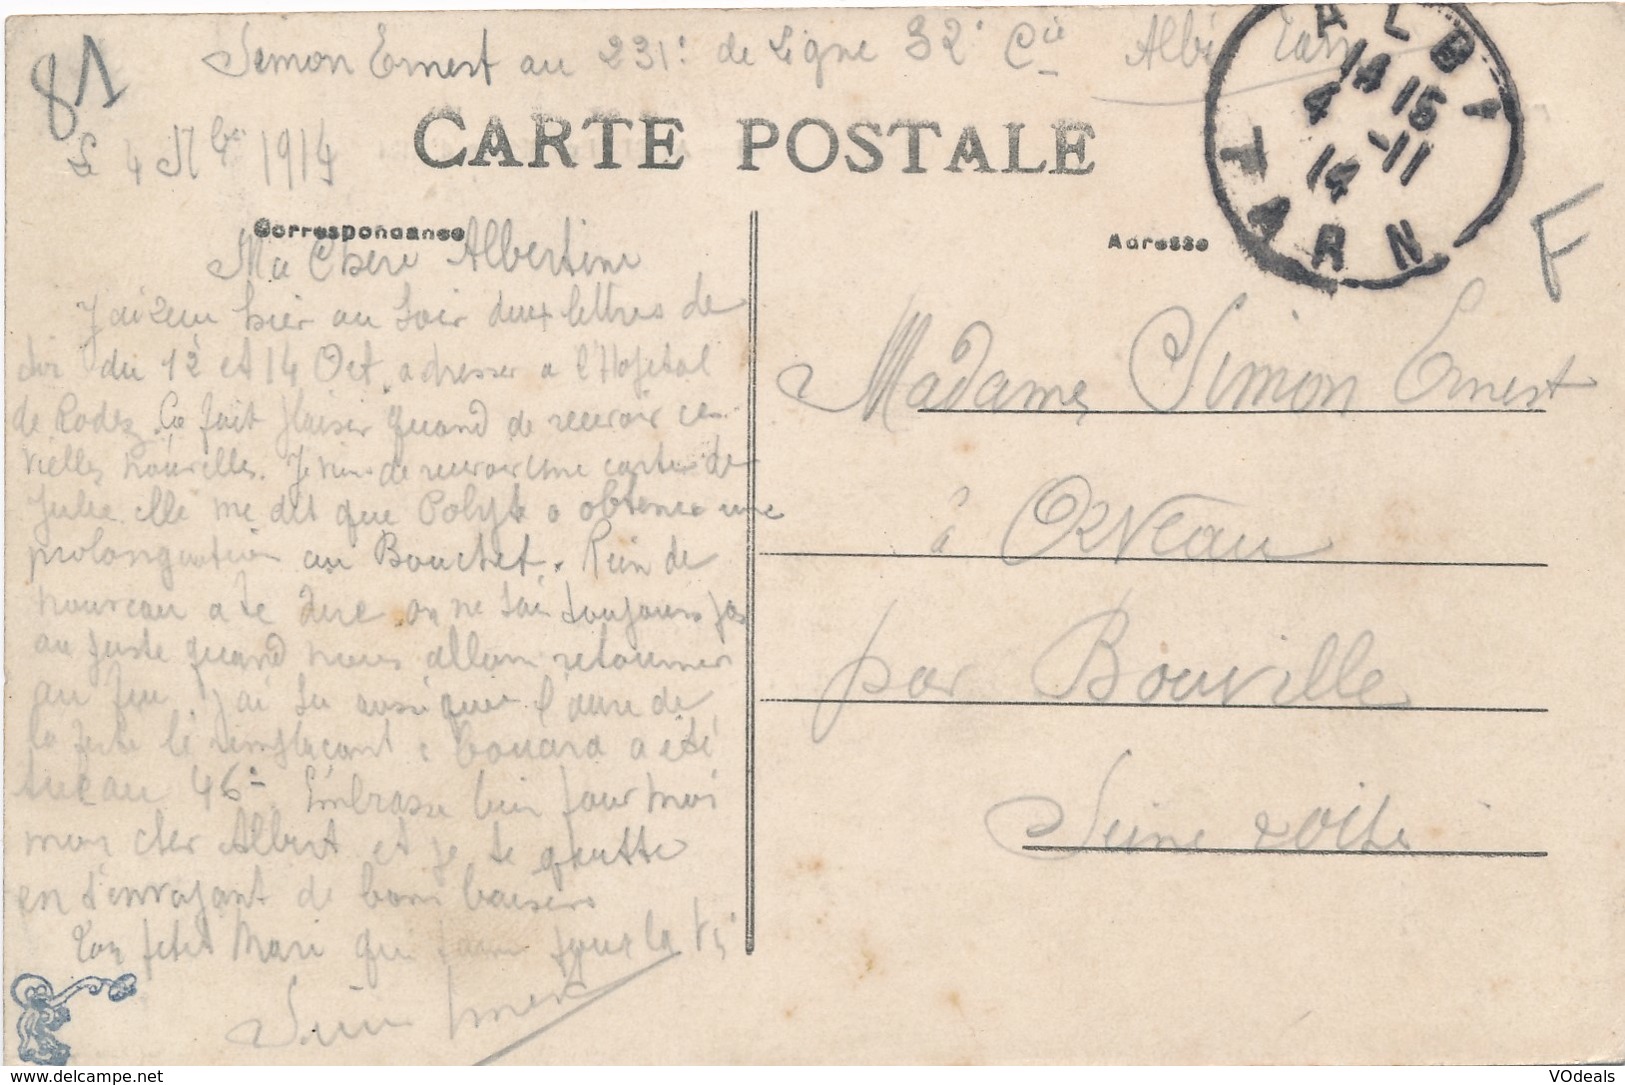 81
Simon Ernest au 231e de Ligne 32e Cie Albi Tarn
ALBI
14 15
4 -11
14
TARN
CARTE POSTALE
Le 4 Nbre 1914
F
Correspondance
Adresse
Ma Chere Albertine
J'ai reçu hier au soir deux lettres de
toi du 12 et 14 Oct. adresser a l'Hopital
de Rodez. Ça fait plaisir quand de recevoir ces
vielles nouvelles. Je viens de recevoir une carte de
Julie elle me dit que Polyte a obtenue une
prolongation au Bouchet. Rien de
nouveau a te dire on ne sai toujours pas
au juste quand nous allons retourner
au feu. J'ai su aussi que de
la le remplaçant a été
tué au 46e. Embrasse bien pour moi
mon cher Albert et je te quitte
en t'envoyant de bons baisers
Ton petit Mari qui t'aime pour la vie
Simon Ernest
Madame Simon Ernest
à Orveau
par Bouville
Seine & Oise
VOdeals
www.delcampe.net